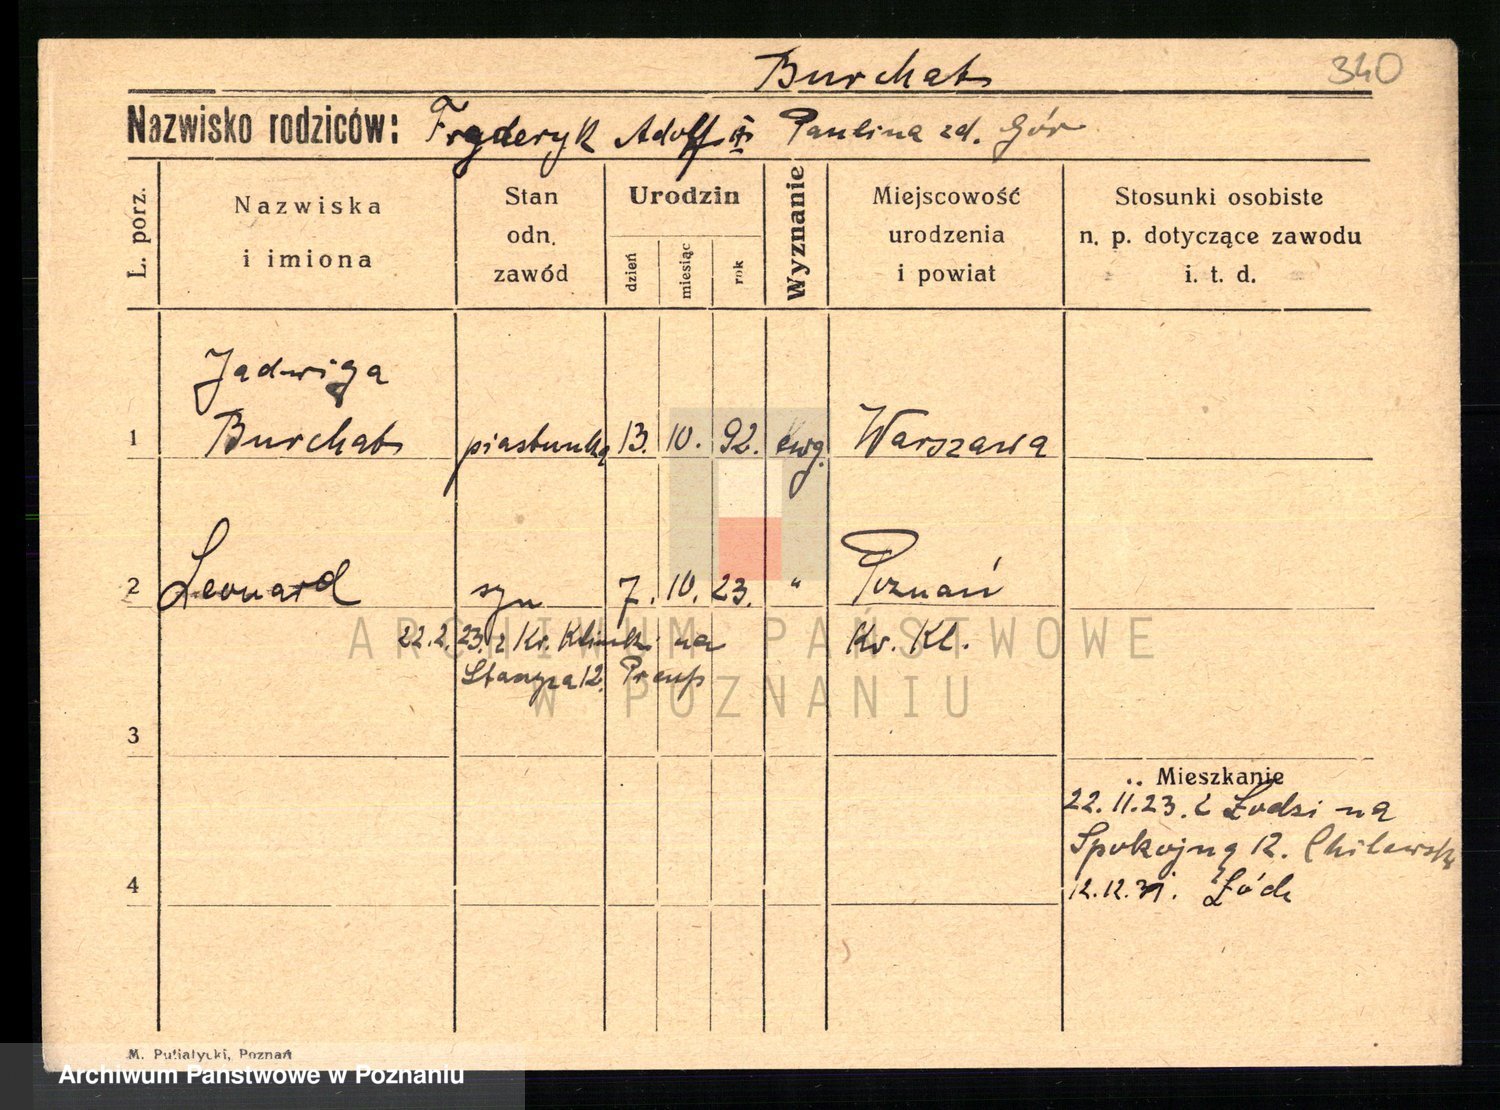 340
Burchat
Nazwisko rodziców: Fryderyk Adolf i Paulina zd. Gór
L. porz.
Nazwiska
i imiona
Stan
odn.
zawód
Urodzin
dzień
miesiąc
rok
Wyznanie
Miejscowość
urodzenia
i powiat
Stosunki osobiste
n. p. dotyczące zawodu
i. t. d.
Jadwiga
1 Burchat piastunka 13. 10. 92. ewg. Warszawa
2 Leonard syn 7. 10. 23. " Poznań
22.2.23. z Kr. na Kr. Kl.
12.
3
Mieszkanie
22.11.23. z Łodzi na
Spokojną 12.
4
12.12.31. Łódź
M. Putiatycki, Poznań
ARCHIWUM PAŃSTWOWE
W POZNANIU
Archiwum Państwowe w Poznaniu